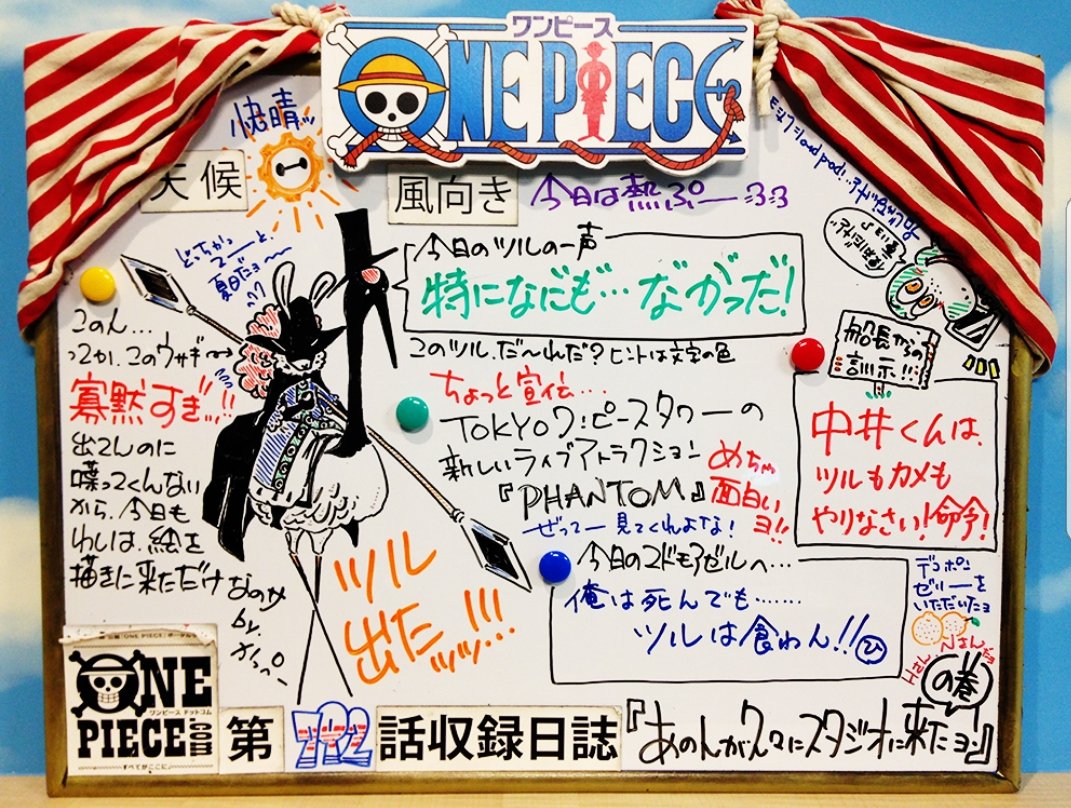 ワンピース
ONE PIECE
快晴ッ
天候
風向き
今日は熱ぷー
どっちかっ
てーと、
夏日だョ〜
今日のツルの一声
特になにも…ながっだ!
このツル、だ〜れだ?ヒントは文字の色
このん…
つか、このウサギ
寡黙すぎッ!!
出てんのに
喋ってくんない
から、今日も
わしは、絵を
描きに来ただけ
なのさ
by.
かっぺー
ちょっと宣伝…
TOKYOワンピースタワーの
新しいライブアトラクション
『PHANTOM』
めちゃ
面白い
ヨ!!
ぜってー見てくれよな!
船長からの
訓示!!
中井くんは、
ツルもカメも
やりなさい!命令!
ツル
出たッッ!!!
今日のマドモアゼルへ…
俺は死んでも……
ツルは食わん!!
ひ
デコポン
ゼリーを
いただいたョ
Hさん、Nさんだョ
の巻
ONE
PIECE
.com
ワンピース ドットコム
すべてがここに。
第
792
話収録日誌
『あのんが久々にスタジオに来たョン』